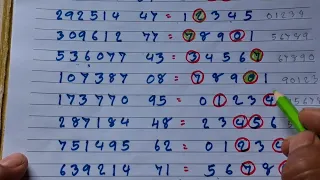 292514 47 = 12345 01239
309612 77 = 78901 56789
536077 43 = 34567 67890
107387 08 = 78901 90123
173770 95 = 01234
287184 48 = 23456
751495 62 = 0123
639214 71 = 5678